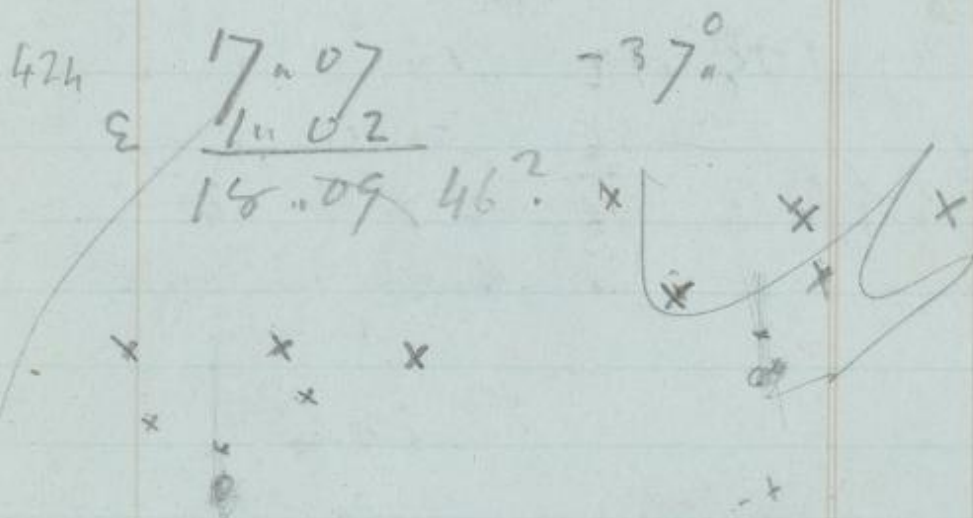 424 17" 07 -37°"
ε 1" 02
18" 09 46?